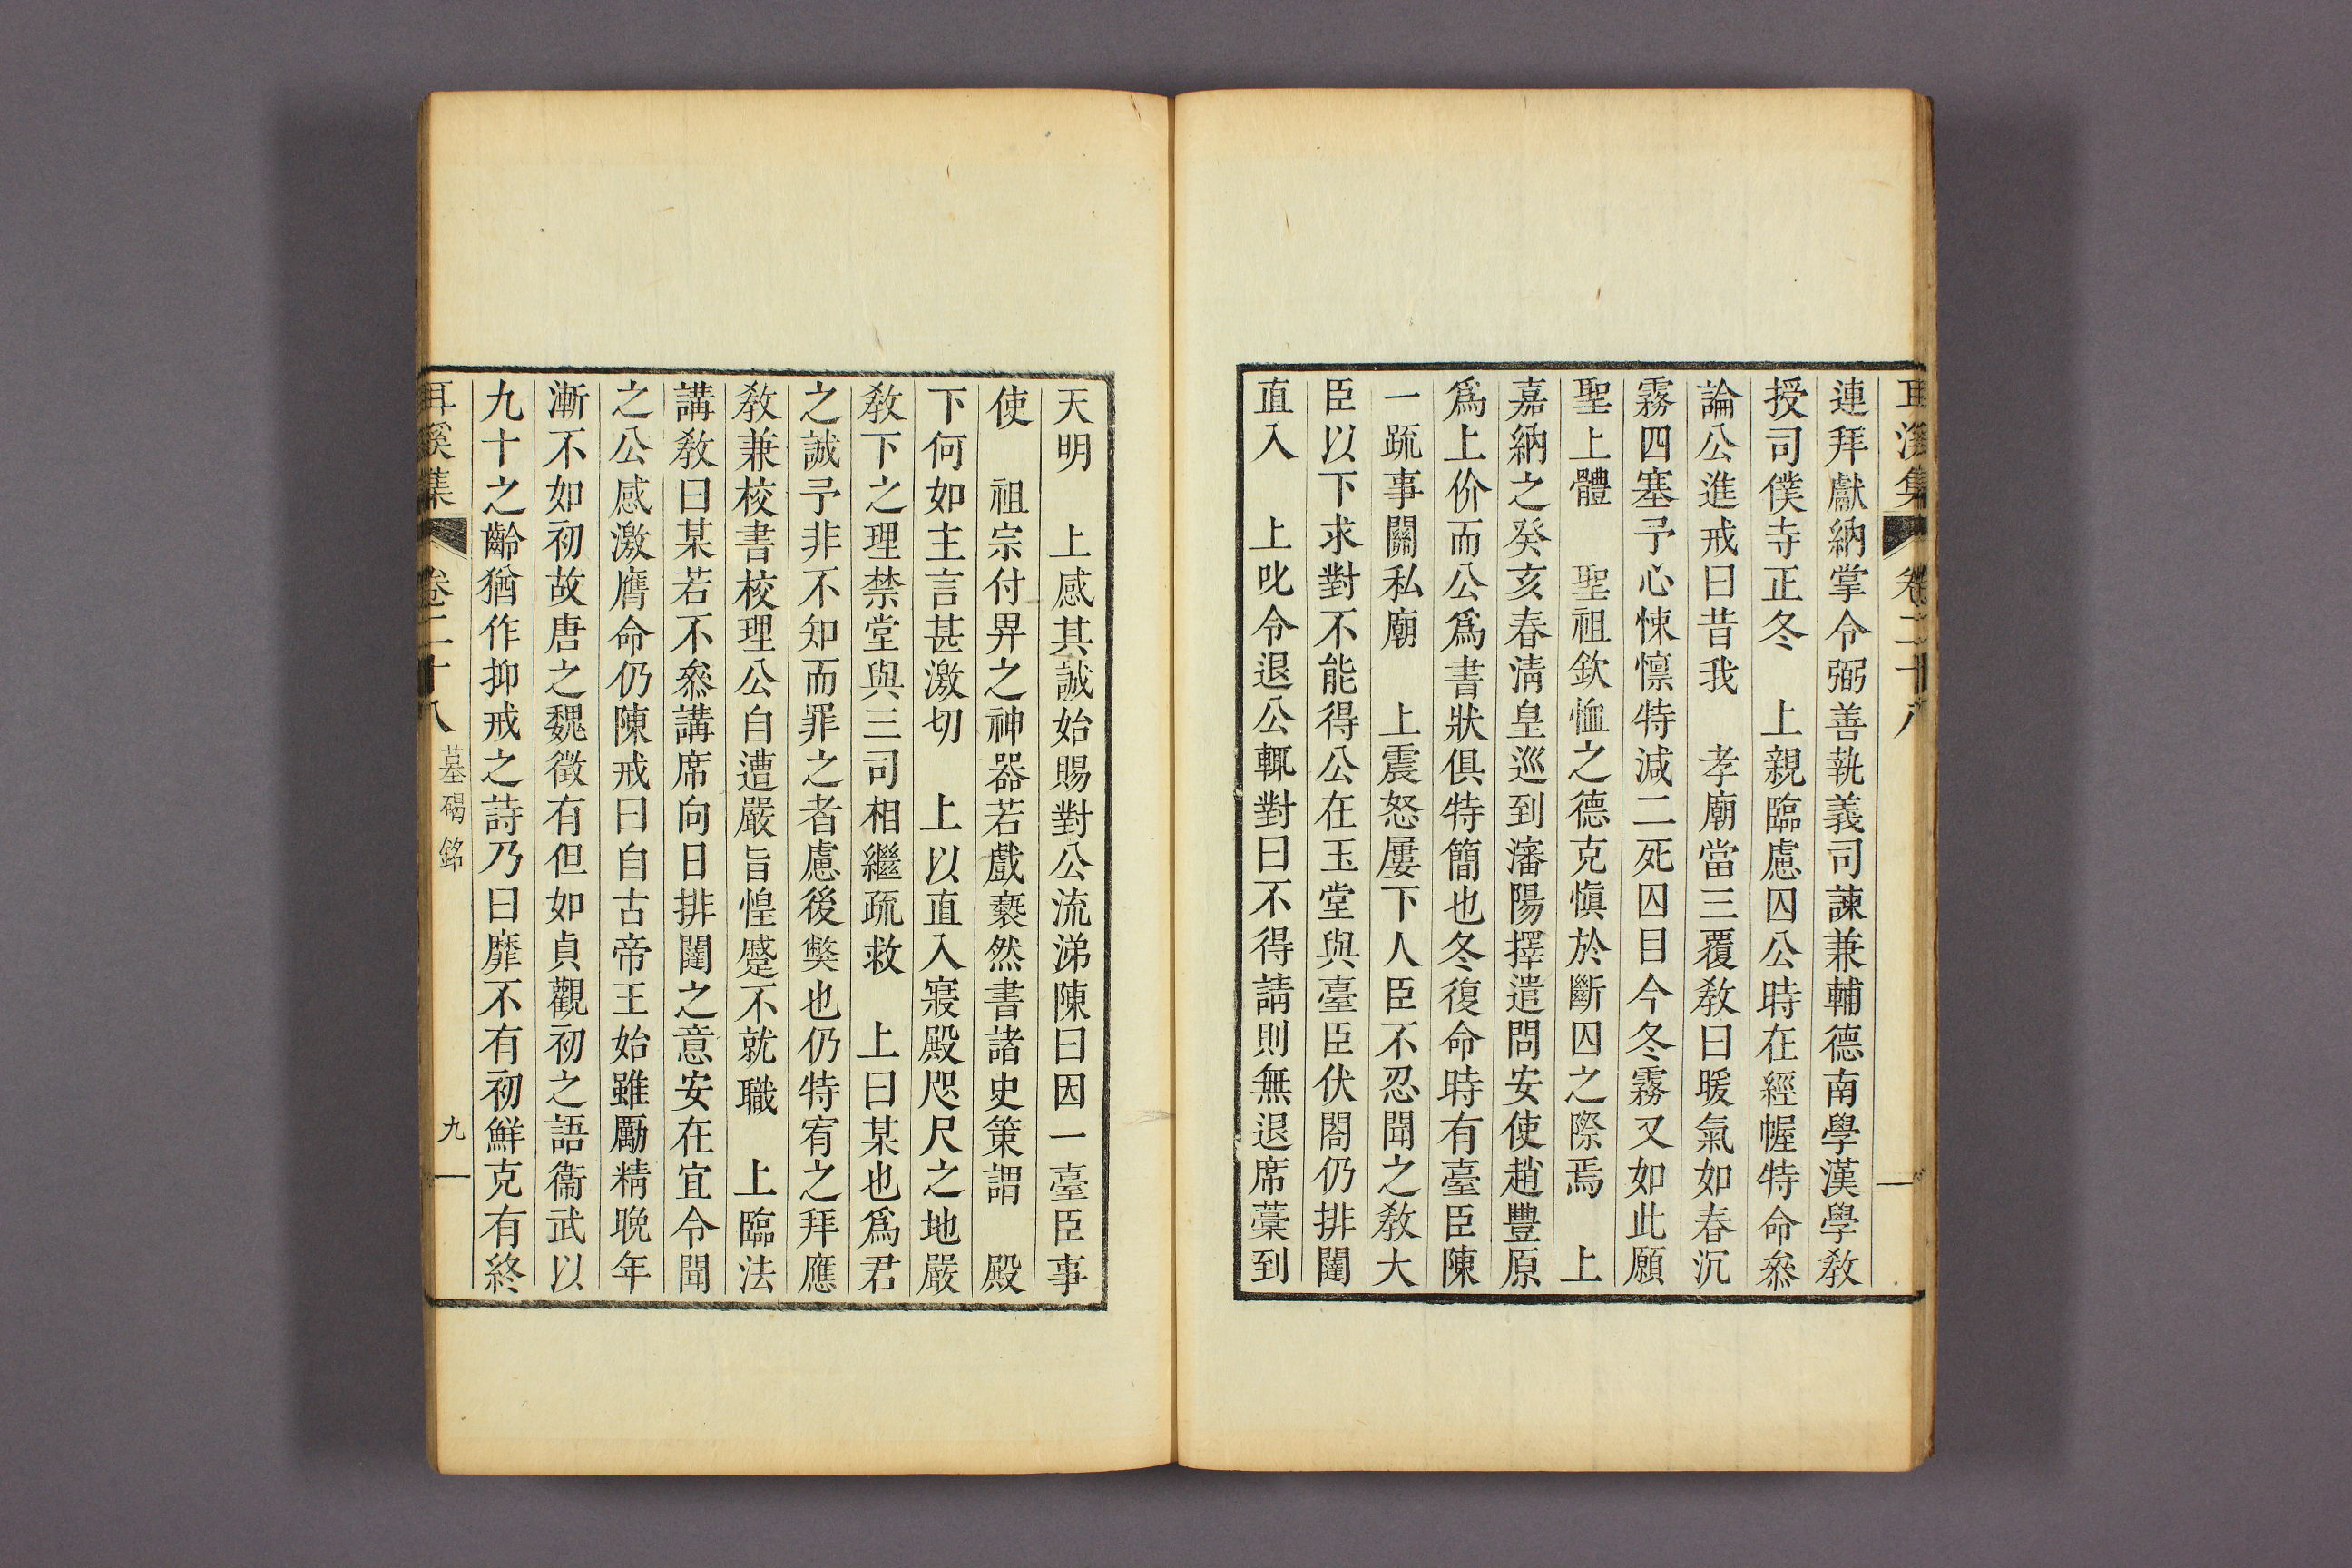 耳溪集 卷二十八
連拜獻納掌令弼善執義司諫兼輔德南學漢學敎
授司僕寺正冬 上親臨慮囚公時在經幄特命叅
論公進戒曰昔我 孝廟當三覆敎曰暖氣如春沉
霧四塞予心悚懍特減二死囚目今冬霧又如此願
聖上體 聖祖欽恤之德克愼於斷囚之際焉 上
嘉納之癸亥春淸皇巡到瀋陽擇遣問安使趙豐原
爲上价而公爲書狀俱特簡也冬復命時有臺臣陳
一疏事關私廟 上震怒屢下人臣不忍聞之敎大
臣以下求對不能得公在玉堂與臺臣伏閤仍排闥
直入 上叱令退公輒對曰不得請則無退席藁到
天明 上感其誠始賜對公流涕陳曰因一臺臣事
使 祖宗付畀之神器若戲褻然書諸史策謂 殿
下何如主言甚激切 上以直入寢殿咫尺之地嚴
敎下之理禁堂與三司相繼疏救 上曰某也爲君
之誠予非不知而罪之者慮後弊也仍特宥之拜應
敎兼校書校理公自遭嚴旨惶蹙不就職 上臨法
講敎曰某若不叅講席向日排闥之意安在宜令聞
之公感激膺命仍陳戒曰自古帝王始雖勵精晚年
漸不如初故唐之魏徵有但如貞觀初之語衞武以
九十之齡猶作抑戒之詩乃曰靡不有初鮮克有終
耳溪集 卷二十八 墓碣銘 九